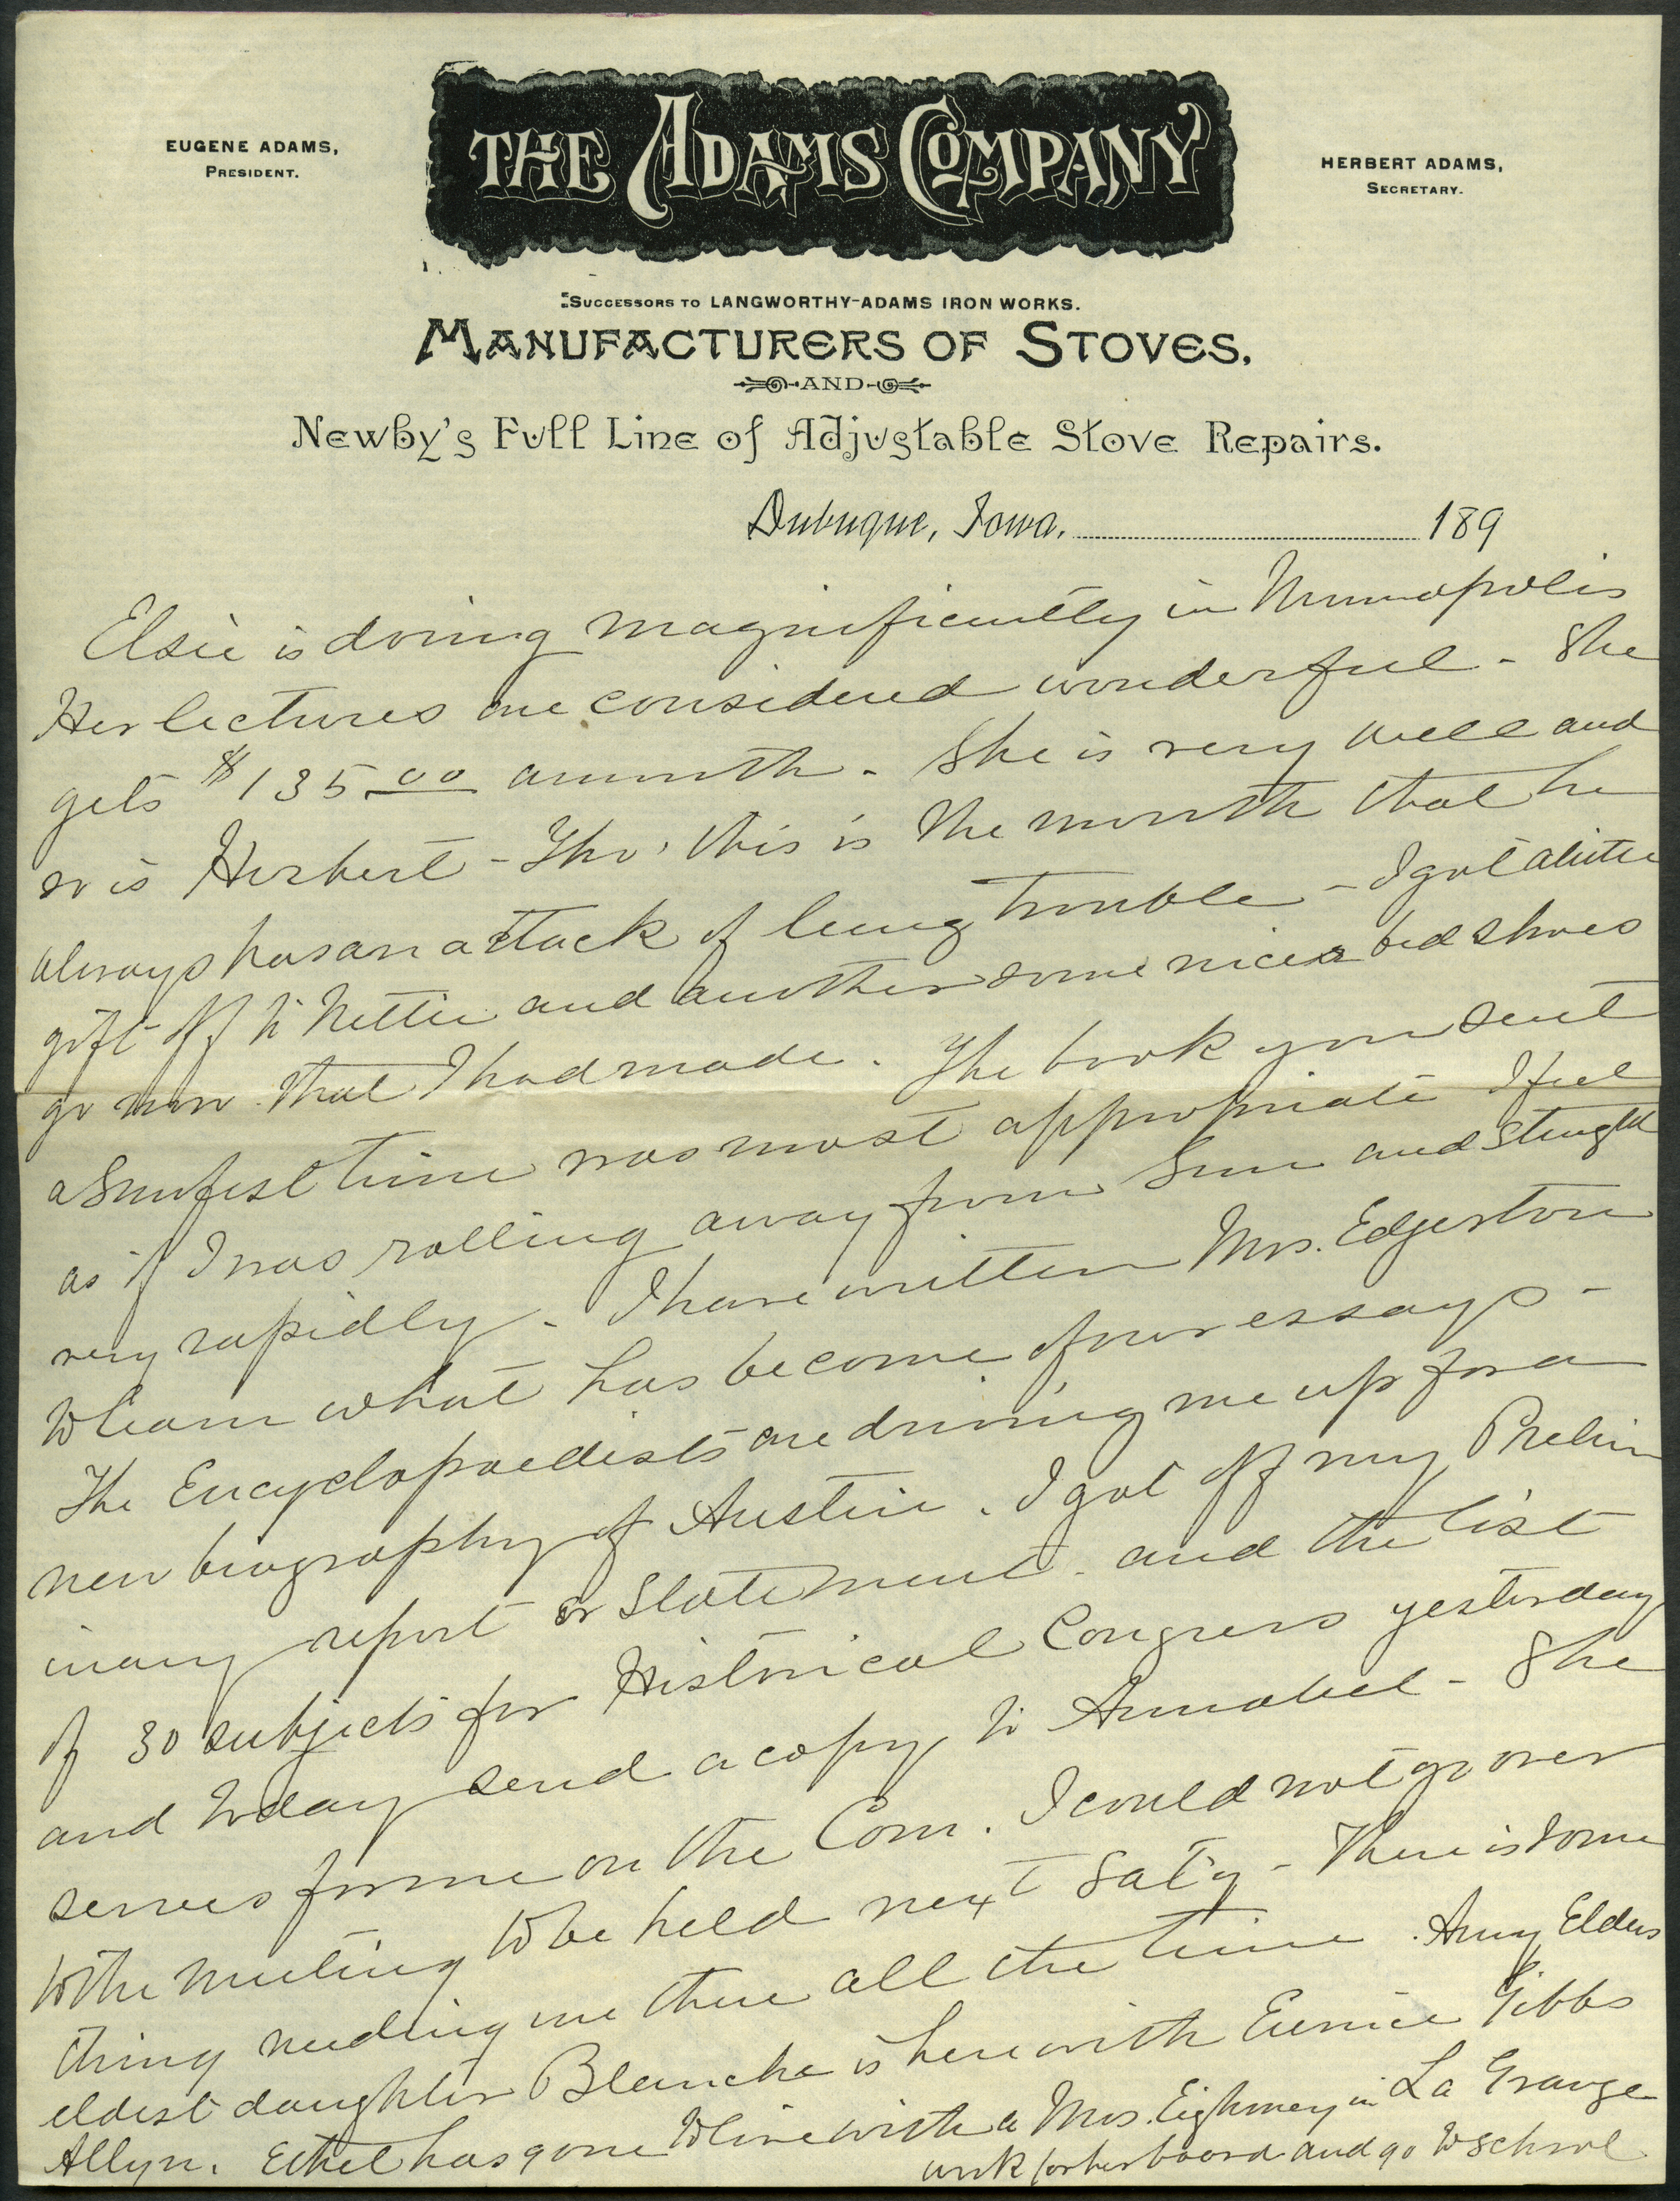 EUGENE ADAMS,
PRESIDENT.
THE ADAMS COMPANY
HERBERT ADAMS,
SECRETARY.
SUCCESSORS TO LANGWORTHY-ADAMS IRON WORKS.
MANUFACTURERS OF STOVES,
AND
Newby's Full Line of Adjustable Stove Repairs.
Dubuque, Iowa, 189
Elsie is doing magnificently in Minneapolis
Her lectures are considered wonderful - She
gets $135.00 a month - She is very well and
so is Herbert - Tho' this is the month that he
always has an attack of lung trouble - I got a little
gift off to Nettie and another some nice bed shoes
go now that I had made. The book you sent
a Sunfest time was most appropriate I feel
as if I was rolling away from Sun and
very rapidly - I have written Mrs. Edgerton
to learn what has become of our essays -
The Encyclopaedists are driving me up for a
new biography of Austin. I got off my Prelim
inary report or Statement and the list
of 30 subjects for Historical Congress yesterday
and today send a copy to Annabel - She
serves for me on the Com. I could not go over
to the meeting to be held next Sat'y - There is some
thing needing me there all the time. Amy Elders
eldest daughter Blanche is here with Eunice Gibbs
Allyn. Ethel has gone to live with a Mrs. Eighmey in La Grange
work for her board and go to school